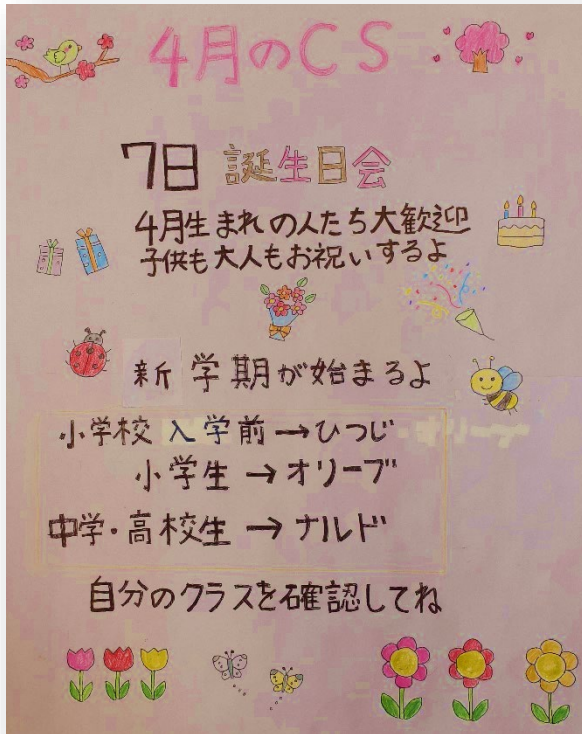 4月のCS
7日 誕生日会
4月生まれの人たち大歓迎
子供も大人もお祝いするよ
新学期が始まるよ
小学校入学前→ひつじ
小学生→オリーブ
中学・高校生→ナルド
自分のクラスを確認してね